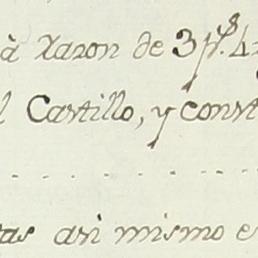 à razon de 3 p.s 4
l Castillo, y const
tas asi mismo e